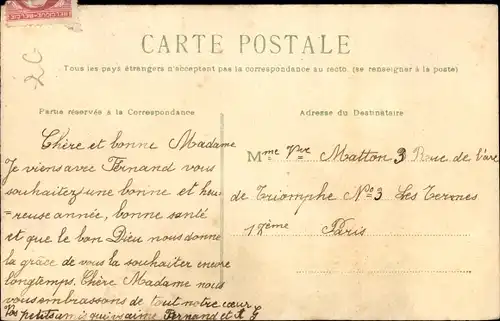 CARTE POSTALE
Tous les pays étrangers n'acceptent pas la correspondance au recto. (se renseigner à la poste)
Partie réservée à la Correspondance
Adresse du Destinataire
20
Chère et bonne Madame
Je viens avec Fernand vous
souhaitez une bonne et heu
=reuse année, bonne santé
et que le bon Dieu nous donne
la grâce de vous la souhaiter encore
longtemps. Chère Madame nous
vous embrassons de tout notre cœur
Vos petits amis qui vs aime Fernand et A G
Mme Vve Matton 3 Rue de l'arc
de Triomphe No 3 Les Ternes
17ème Paris